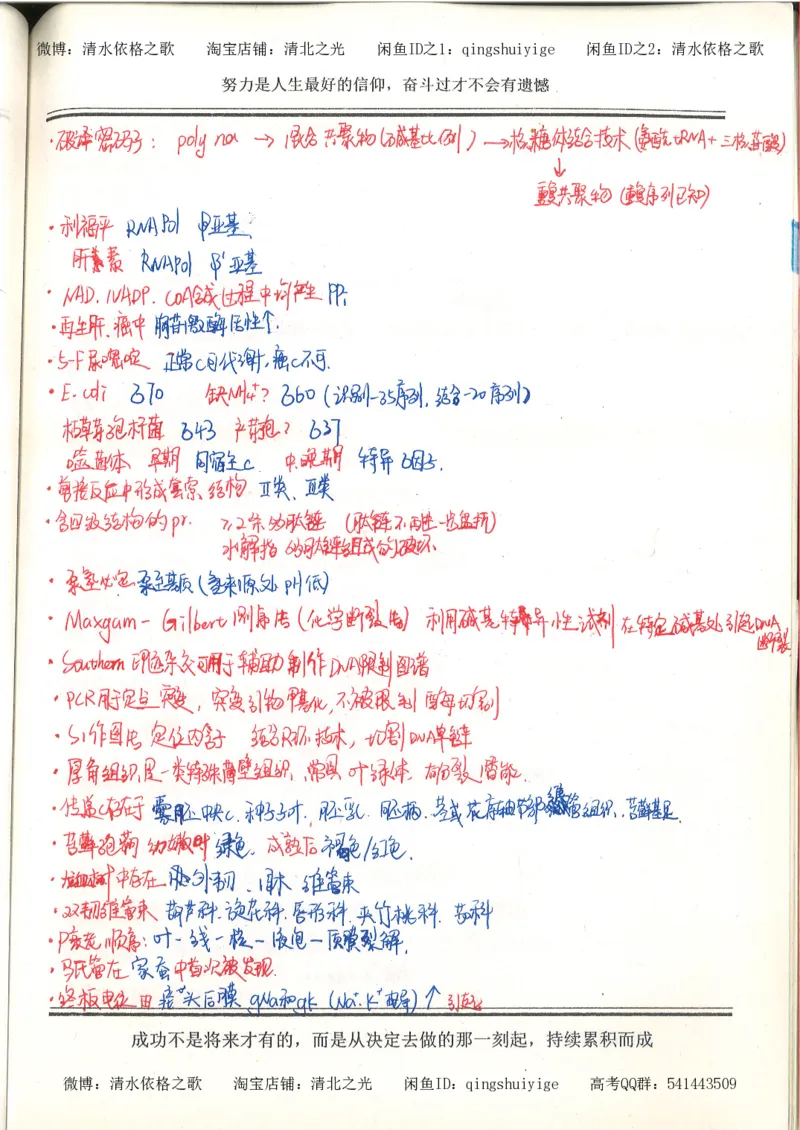 微博：清水依格之歌 淘宝店铺：清北之光 闲鱼ID之1：qingshuiyige 闲鱼ID之2：清水依格之歌
努力是人生最好的信仰，奋斗过才不会有遗憾
·破译密码子：poly na → 混合共聚物(碱基比例) → 核糖体结合技术(氨酰tRNA+三核苷酸)
↓
重复共聚物(重复序列已知)
·利福平 RNAPol β亚基
肝素 RNAPol β'亚基
·NAD、NADP、COA合成过程中均产生PPi
·再生肝、癌中胸苷激酶活性↑.
·5-F尿嘧啶 正常C可代谢，癌C不可.
·E.coli б70 缺NH4+? б60(识别-35序列，结合-20序列)
枯草芽孢杆菌 б43 产芽孢? б37
噬菌体 早期 同宿主C 中、晚期 特异б因子.
·剪接反应中形成套索结构 II类、III类
·含四级结构的pr. ≥2条的肽链 (肽链不再进一步盘折)
水解指 的肽链组成的破坏
·Gilbert测序法(化学断裂法) 利用碱基特异性试剂在特定碱基处引起DNA断裂
·Southern印迹杂交可用于辅助制作DNA限制图谱
·PCR用于定点突变，突变引物甲基化，不被限制酶切割
·S1作图法 定位内含子 结合R环技术，切割DNA单链
·厚角组织是一类特殊薄壁组织，常具叶绿体、有分裂潜能.
·传递C存在于 胚中央C、种子子叶、胚乳、胚柄、茎或花序轴节部 组织、苔藓基足
·苔藓孢蒴 幼嫩时绿色，成熟后褐色/红色.
中存在 外韧 维管束
·双韧维管束 葫芦科、旋花科、唇形科、夹竹桃科、茄科
·衰老顺序：叶-线-核-液泡-质膜裂解.
·马氏管在家蚕中首次被发现.
·终板电位由接头后膜 gNa和gK (Na+、K+电导)↑引起
成功不是将来才有的，而是从决定去做的那一刻起，持续累积而成
微博：清水依格之歌 淘宝店铺：清北之光 闲鱼ID：qingshuiyige 高考QQ群：541443509